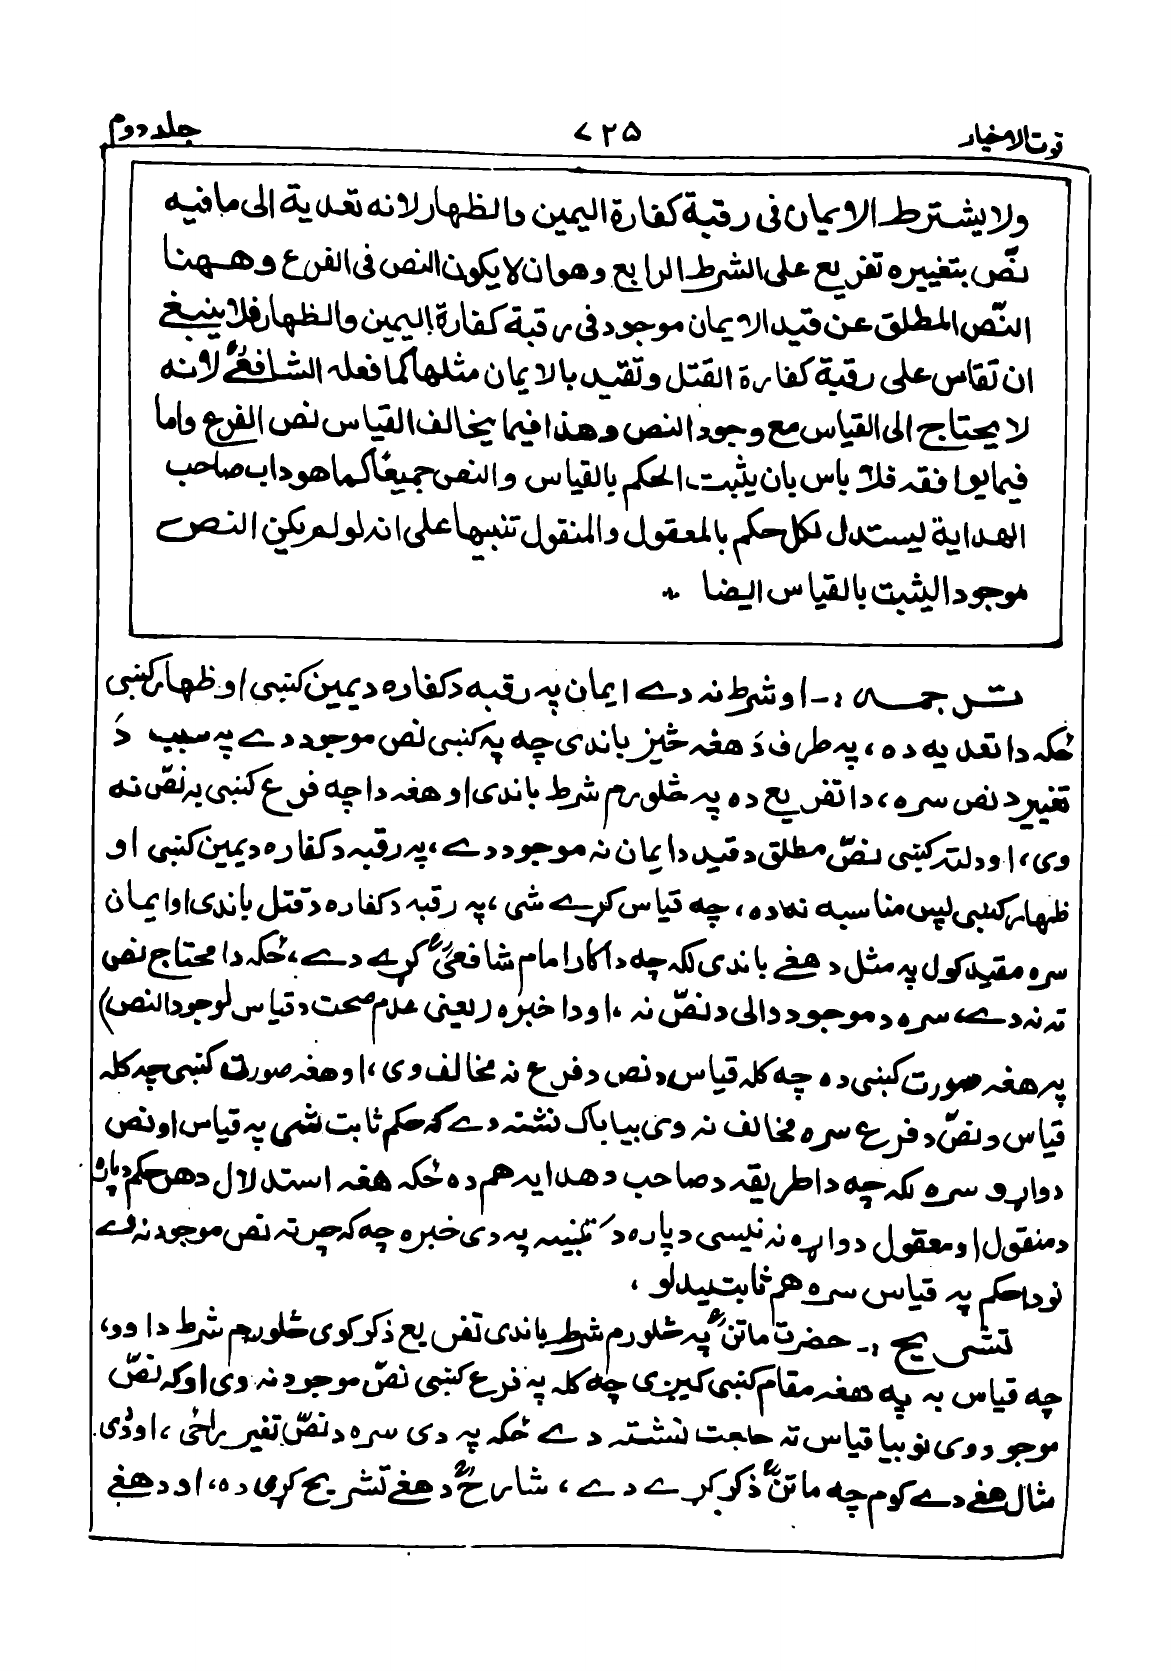 قوت الاخیار ۷۲۵ جلد دوم
ولا یشترط الایمان فی رقبة کفارة الیمین والظهار لانه تعدیة الی ما فیه
نصّ بتغییره تفریع علی الشرط الرابع وهو ان لا یکون النص فی الفرع وههنا
النصّ المطلق عن قید الایمان موجود فی رقبة کفارة الیمین والظهار فلا ینبغی
ان تقاس علی رقبة کفارة القتل وتقید بالایمان مثلها کما فعله الشافعیؒ لانه
لا یحتاج الی القیاس مع وجود النص وهذا فیما یخالف القیاس نص الفرع واما
فیما یوافقه فلا باس بان یثبت الحکم بالقیاس والنص جمیعًا کما هو داب صاحب
الهدایة لیستدل لکل حکم بالمعقول والمنقول تنبیها علی انه لو لم یکن النص
موجودا لیثبت بالقیاس ایضا
ترجمه :- او شرط نه دے ایمان په رقبه د کفاره د یمین کنبی او ظهار کنبی
ځکه دا تعدیه ده، په طرف دَ هغه څیز باندی چه په کنبی نص موجود دے په سبب دَ
تغییر د نص سره، دا تفریع ده په څلورم شرط باندی او هغه دا چه فرع کنبی به نصّ نه
وی، او دلته کنبی نصّ مطلق د قید د ایمان نه موجود دے، په رقبه د کفاره د یمین کنبی او
ظهار کنبی لپس مناسبه نه ده، چه قیاس کړے شی، په رقبه د کفاره د قتل باندی او ایمان
سره مقید کول په مثل د هغے باندی لکه چه دا کار امام شافعیؒ کړے دے، ځکه دا محتاج نص
ته نه دے، سره د موجود والی د نصّ نه، او دا خبره (یعنی عدم صحت د قیاس لوجود النص)
په هغه صورت کنبی ده چه کله قیاس د نص د فرع نه مخالف وی، او هغه صورت کنبی چه کله
قیاس د نصّ د فرع سره مخالف نه وی بیا باک نشته دے که حکم ثابت شی په قیاس او نص
دواړو سره لکه چه دا طریقه د صاحب د هدایه هم ده ځکه هغه استدلال د هر حکم دپاره
د منقول او معقول دواړه نه نیسی دپاره دَ تنبیه په دی خبره چه که چرته نص موجود نه وے
نو دا حکم په قیاس سره هم ثابتیدلو،
تشریح :- حضرت ماتنؒ په څلورم شرط باندی تفریع ذکر کوی څلورم شرط دا وو،
چه قیاس به په هغه مقام کنبی کیږی چه کله په فرع کنبی نصّ موجود نه وی او که نصّ
موجود وی نو بیا قیاس ته حاجت نشته دے ځکه په دی سره د نصّ تغیر راځی، او دُدی
مثال هغے دے کوم چه ماتنؒ ذکر کړے دے، شارحؒ د هغے تشریح کړی ده، او د هغے